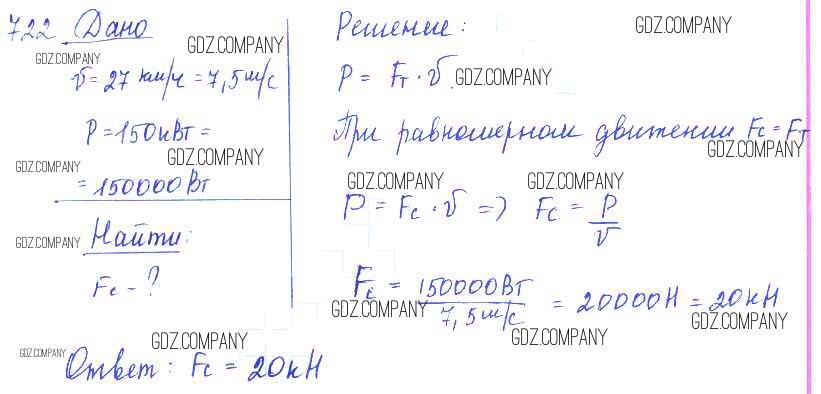 722 Дано
GDZ.COMPANY
v = 27 км/ч = 7,5 м/с
GDZ.COMPANY
P = 150 кВт =
GDZ.COMPANY
GDZ.COMPANY
= 150000 Вт
Найти:
GDZ.COMPANY
Fc - ?
Решение:
GDZ.COMPANY
P = Fт · v.
GDZ.COMPANY
При равномерном движении Fc = Fт
GDZ.COMPANY
GDZ.COMPANY GDZ.COMPANY
P = Fc · v => Fc = P/v
Fc = 150000 Вт / 7,5 м/с = 20000 Н = 20 кН
GDZ.COMPANY GDZ.COMPANY
GDZ.COMPANY
GDZ.COMPANY
GDZ.COMPANY
Ответ: Fc = 20 кН